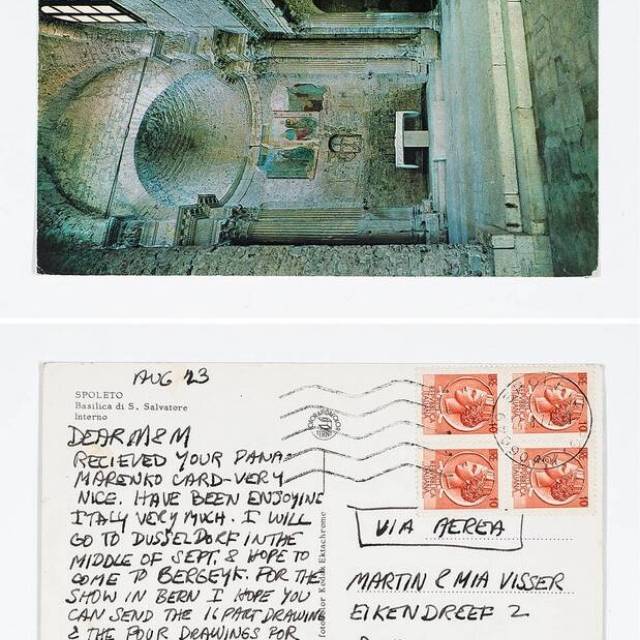 AUG 23
SPOLETO
Basilica di S. Salvatore
Interno
DEAR M & M
RECIEVED YOUR PANA-
MARENKO CARD-VERY
NICE. HAVE BEEN ENJOYING
ITALY VERY MUCH. I WILL
GO TO DUSSELDORF IN THE
MIDDLE OF SEPT. & HOPE TO
COME TO BERGEYK. FOR THE
SHOW IN BERN I HOPE YOU
CAN SEND THE 16 PART DRAWING
& THE FOUR DRAWINGS FOR
Kodak Ektachrome
VIA AEREA
MARTIN & MIA VISSER
EIKENDREEF 2